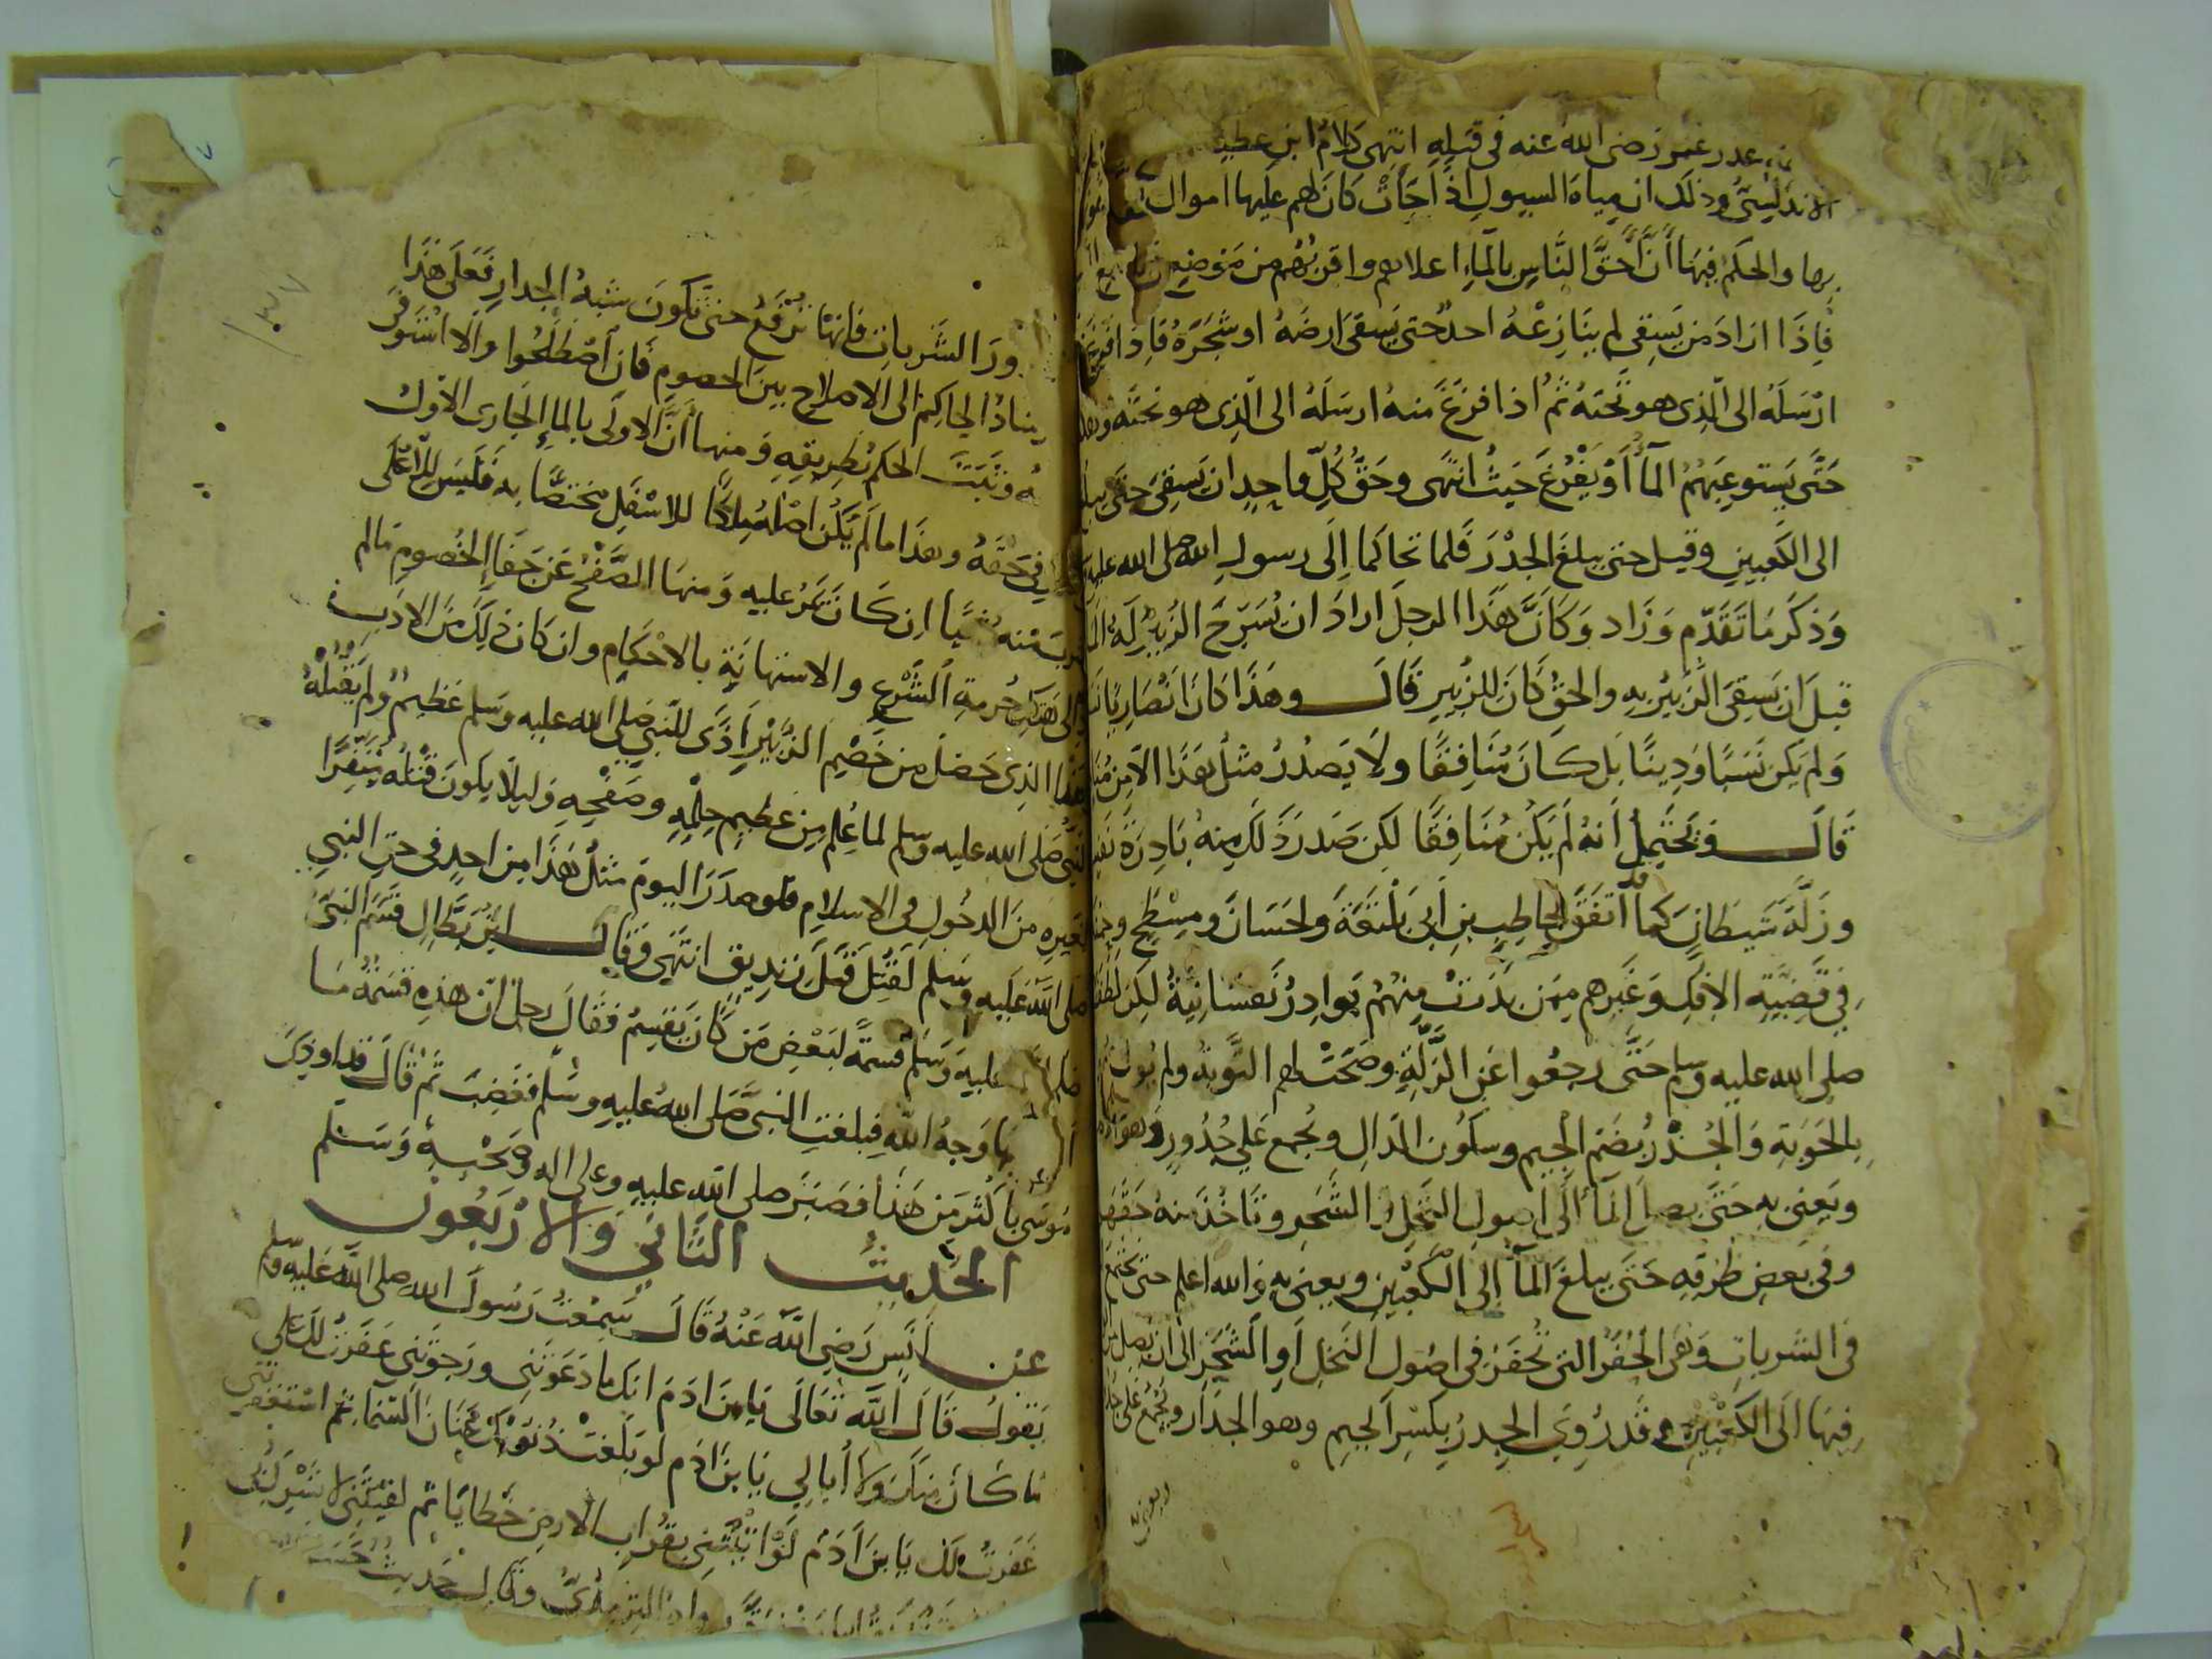 عدر عمر رضى الله عنه فى قتله انتهى كلام ابن عطية
الاندلسي وذلك ان مياه السيول اذا جَأت كان لهم عليها اموال
بها والحكم فيها أَنَّ أَحقَّ النَّاسِ بالمآءِ اعلاهم واقربهم من
فاِذَا ارَادَ من يَسقِى لم ينَازِعْهُ احدٌ حتى يَسقى ارضَهُ او شجَرهُ فاِذا افرغ
ارْسَلَهُ الى الّذِى هو تحتهُ ثم اذا فرَغَ منهُ ارسَلَهُ الى الّذِى هو تحته
حَتَّى يَستوعِبَهُمُ المآءُ أوْ يَفْرُغَ حَيثُ انتهَى وحَقُّ كُلِّ واحِدٍ ان يَسقى حتى يبلغ
الى الكَعبينِ وقيل حتى يبلغَ الجدْرَ فلما تحاكما اِلَى رسولِ الله صلى الله عليه
وَذكَرَ مَا تَقَدَّم وَزَاد وَكَانَّ هَذا الرجلَ ارادَ ان يُسَرّحَ الزبيرُ لَهُ الما
قبلَ ان يَسقِىَ الزبيرُ به والحقُّ كَانَ للزبيرِ قَالَ وهَذا كانَ انْصَارِيًا
وَلم يكن نَسَبًا وَدِينًا بل كانَ مُنَافِقًا ولا يَصدُرُ مثلُ هَذا الا من
قَالَ ويحتمِلُ أنهُ لَم يَكُن مُنَافِقًا لكِن صَدَر ذَلِكَ مِنهُ بَادِرَة
وزَلَّةَ شَيطانٍ كما قد اتّفَقَ لحاطِبِ بنِ أبى بَلتعَة ولحَسَانَ ومِسْطَحٍ
فِي قَضِيَّةِ الافكِ وَغَيرِهم مِمَن بدَرَتْ مِنهُمْ بَوادِرُ نَفسَانِيَّةٌ لكِن
صلى الله عليه وسلم حَتَّى رجعُوا عَن الزَّلَّةِ وصَحَتْ لهم التَّوبَة ولم
بالحَوبَةِ وَالجُدْرُ بضَمِّ الجيم وسكُون الدالِ ويجمع عَلى جُدُورٍ
ويَعنِى بِهِ حَتَّى يصل المَآُ الى اصولِ النَّخلِ والشَّجَرِ وتَاخُذَ منهُ حَقَّهَا
وفى بَعضِ طُرقِه حَتَّى يبلغَ المَآُ إلى الكَعْبَينِ ويعنى به والله اعلم حتى يجتمع
فى الشَّرَبَاتِ وَهى الحُفَرُ التى تُحفَرُ فى اصُول النَخلِ أوِ الشَّجَرِ الى ان يَصِل
فيها الَى الكَعْبَينِ وقَد رُوِىَ الجِدرُ بكسْرِ الجيم وهو الجدَار ويجمع على
ويعنى به
ورَا الشَّرَبَاتِ فانهَا تُرْفَعُ حتى تكُونَ شبهُ الجِدارِ فعَلَى هَذَا
الحاكِم الى الاصلاح بين الخصوم فان اصْطَلحُوا والا اسْتوفى
وثبَّتَ الحكم بطَريقِهِ وَمنها أَنَّ الاولَى بالمآءِ الجَارى الاولُ
حَقَّهُ وهذَا ما لَم يَكُن اصْلهُ مِلكًا للاسْفَلِ مختصًّا به فَليسَ للاَعْلَى
منهُ شَيًا اِن كَانَ يَمُرُّ عليهِ وَمنهَا الصَّفْحُ عَن جَفَاءِ الخُصومِ مَا لم
حُرمةِ الشَّرْعِ والاستهانَةِ بالاحْكَامِ وان كَانَ ذلِكَ منَ الادَبِ
الذِى حَصَلَ مِن خَصْمِ الزُّبَيْرِ أذًى للنّبِي صَلى الله عليه وَسَلم عَظيمٌ ولم يَقْتُلْهُ
النّبيُّ صَلى الله عليه وسلم لما عُلِم مِن عَظيم حِلْمِهِ وصَفْحِهِ ولِيلا يكونَ قتْلُه مُنَفِّرًا
لغَيرِهِ منَ الدخُولِ فى الاسلامِ فلو صدَرَ اليومَ مثلُ هَذا مِن احدٍ فى حَقِ النبي
صلى الله عَليه وسَلم لَقُتِلَ قتلَ زنديقٍ انتَهَى وَقالَ ابنُ بَطَّالٍ قَسَمَ النبىُّ
صَلى عليهِ وَسَلم قسمةً لبَعْضِ مَن كَانَ يَقسِمُ فقَالَ رجلٌ انّ هذهِ قسْمَةٌ مَا
بهَا وَجهُ اللهِ فبلغَتِ النبىَّ صَلى اللهُ عليهِ وسَلَّم فغَضِبَ ثم قَالَ قد اوذِىَ
مُوسَى بأكْثرَ من هَذا فصَبَرَ صلى الله عليهِ وعلى الهِ وصَحْبِهِ وَسَلم
الحَدِيثُ الثَّانِي وَالاَرْبَعُونَ
عَن أنَسٍ رَضِيَ اللهُ عَنْهُ قَالَ سَمِعْتُ رَسُولَ الله صلى الله عَليهِ وسلم
يَقُولُ قَالَ اللهُ تعَالَى يَا ابنَ ادَمَ انكَ ما دَعَوتَنِى ورَجوتَنى غفَرتُ لكَ على
مَا كَانَ مِنكَ وَلا أُبَالِي يَا بنَ ادَم لَو بَلَغتْ ذُنوبُكَ عنَانَ السّمَا ثم اسْتغفَرتَنى
غفَرتُ لكَ يَا بنَ آدَم لَو اتَيتَنى بقُرابِ الارضِ خَطايَا ثم لقِيتَنى لا تشرِكُ بى
رواهُ الترمذىُّ وقَالَ حَديثٌ حَسَنٌ